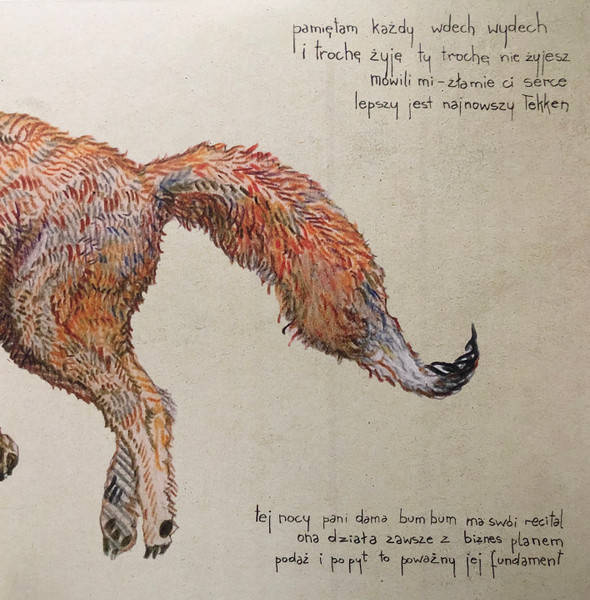 pamiętam każdy wdech wydech
i trochę żyję ty trochę nie żyjesz
mówili mi - złamie ci serce
lepszy jest najnowszy Tekken
tej nocy pani dama bum bum ma swój recital
ona działa zawsze z biznes planem
podaż i popyt to poważny jej fundament